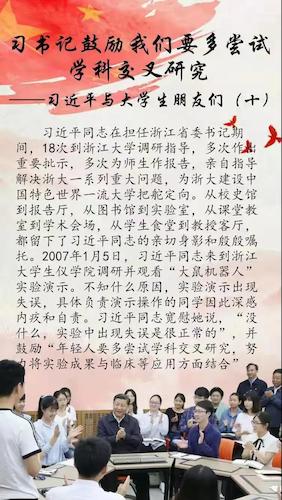 习书记鼓励我们要多尝试
学科交叉研究
——习近平与大学生朋友们（十）
习近平同志在担任浙江省委书记期
间，18次到浙江大学调研指导，多次作出
重要批示，多次为师生作报告，亲自指导
解决浙大一系列重大问题，为浙大建设中
国特色世界一流大学把舵定向。从校史馆
到报告厅，从图书馆到实验室，从课堂教
室到学术会场，从学生食堂到教授客厅，
都留下了习近平同志的亲切身影和殷殷嘱
托。2007年1月5日，习近平同志来到浙江
大学生仪学院调研并观看“大鼠机器人”
实验演示。不知什么原因，实验演示出现
失误，具体负责演示操作的同学因此深感
内疚和自责。习近平同志宽慰她说，“没
什么，实验中出现失误是很正常的”，并
鼓励“年轻人要多尝试学科交叉研究，努
力将实验成果与临床等应用方面结合”